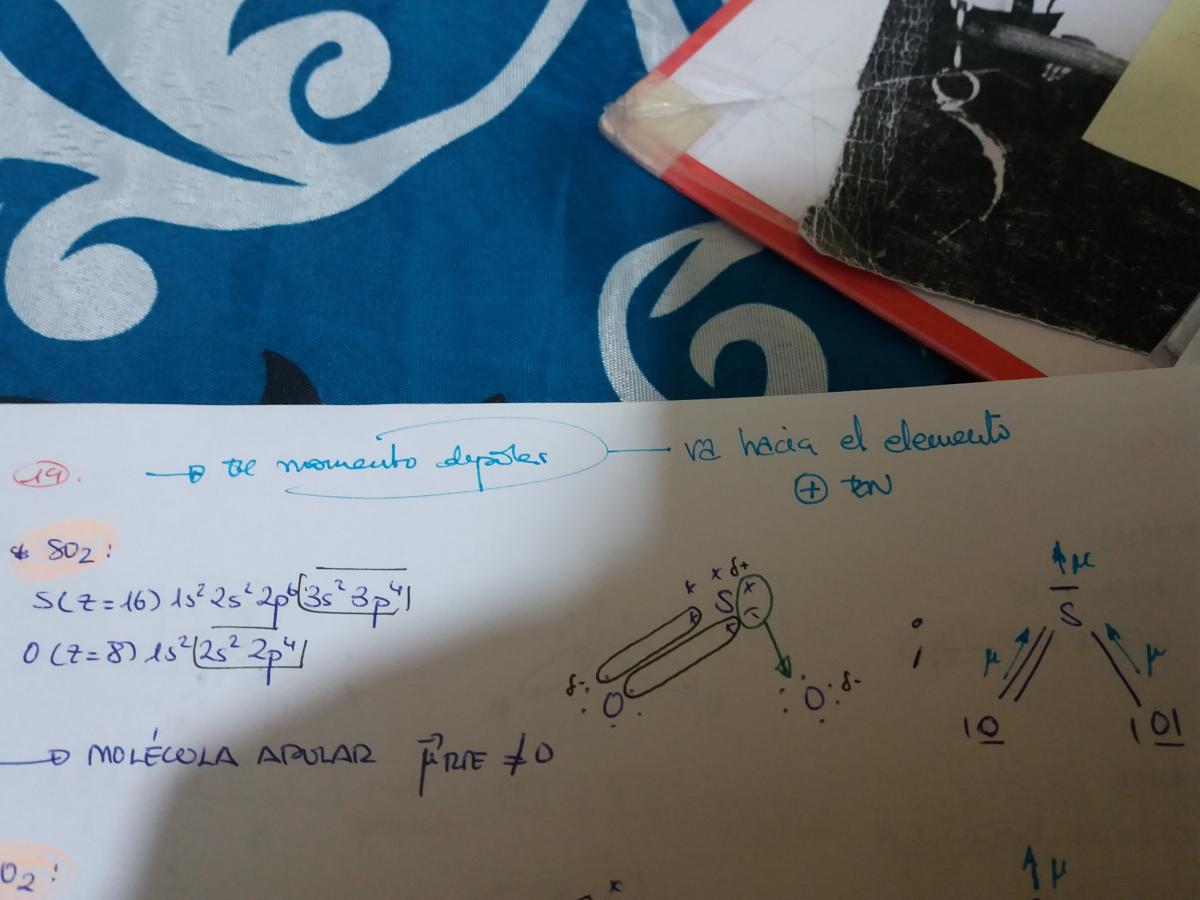 19. → de momento dipolar — va hacia el elemento
⊕ EN
* SO₂:
S(Z=16) 1s² 2s² 2p⁶ 3s² 3p⁴
O(Z=8) 1s² 2s² 2p⁴
δ+
S
δ- O
O δ-
;
μ
S
μ μ
|O |O|
→ MOLÉCULA APOLAR μ⃗RTE ≠ 0
O₂:
μ